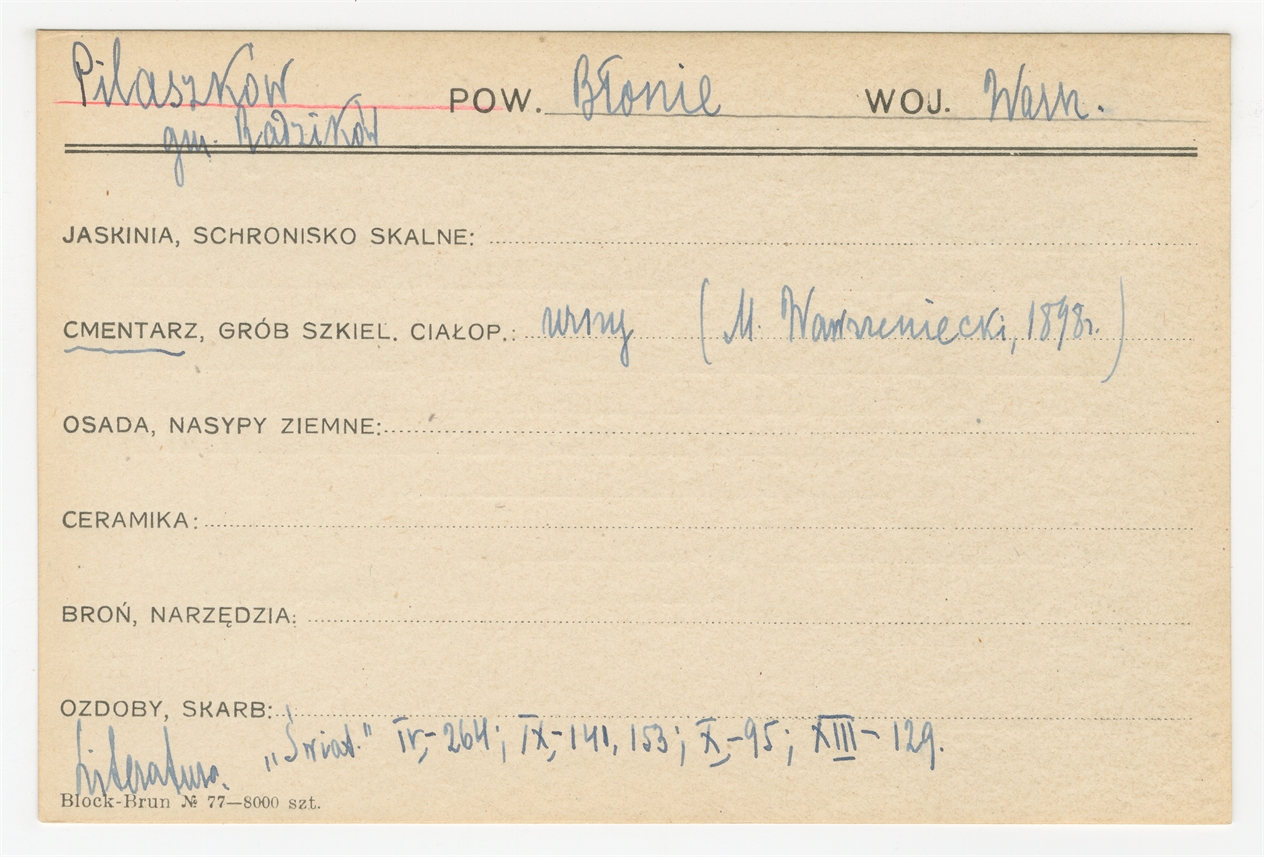 Pilaszków POW. Błonie WOJ. Warsz.
gm. Radzików
JASKINIA, SCHRONISKO SKALNE:
CMENTARZ, GRÓB SZKIEL. CIAŁOP.: urny (M. Wawrzeniecki, 1898r.)
OSADA, NASYPY ZIEMNE:
CERAMIKA:
BROŃ, NARZĘDZIA:
OZDOBY, SKARB:
Literatura. „Świat." IV,-264; IX,-141, 153; X,-95; XIII- 129.
Block-Brun № 77—8000 szt.